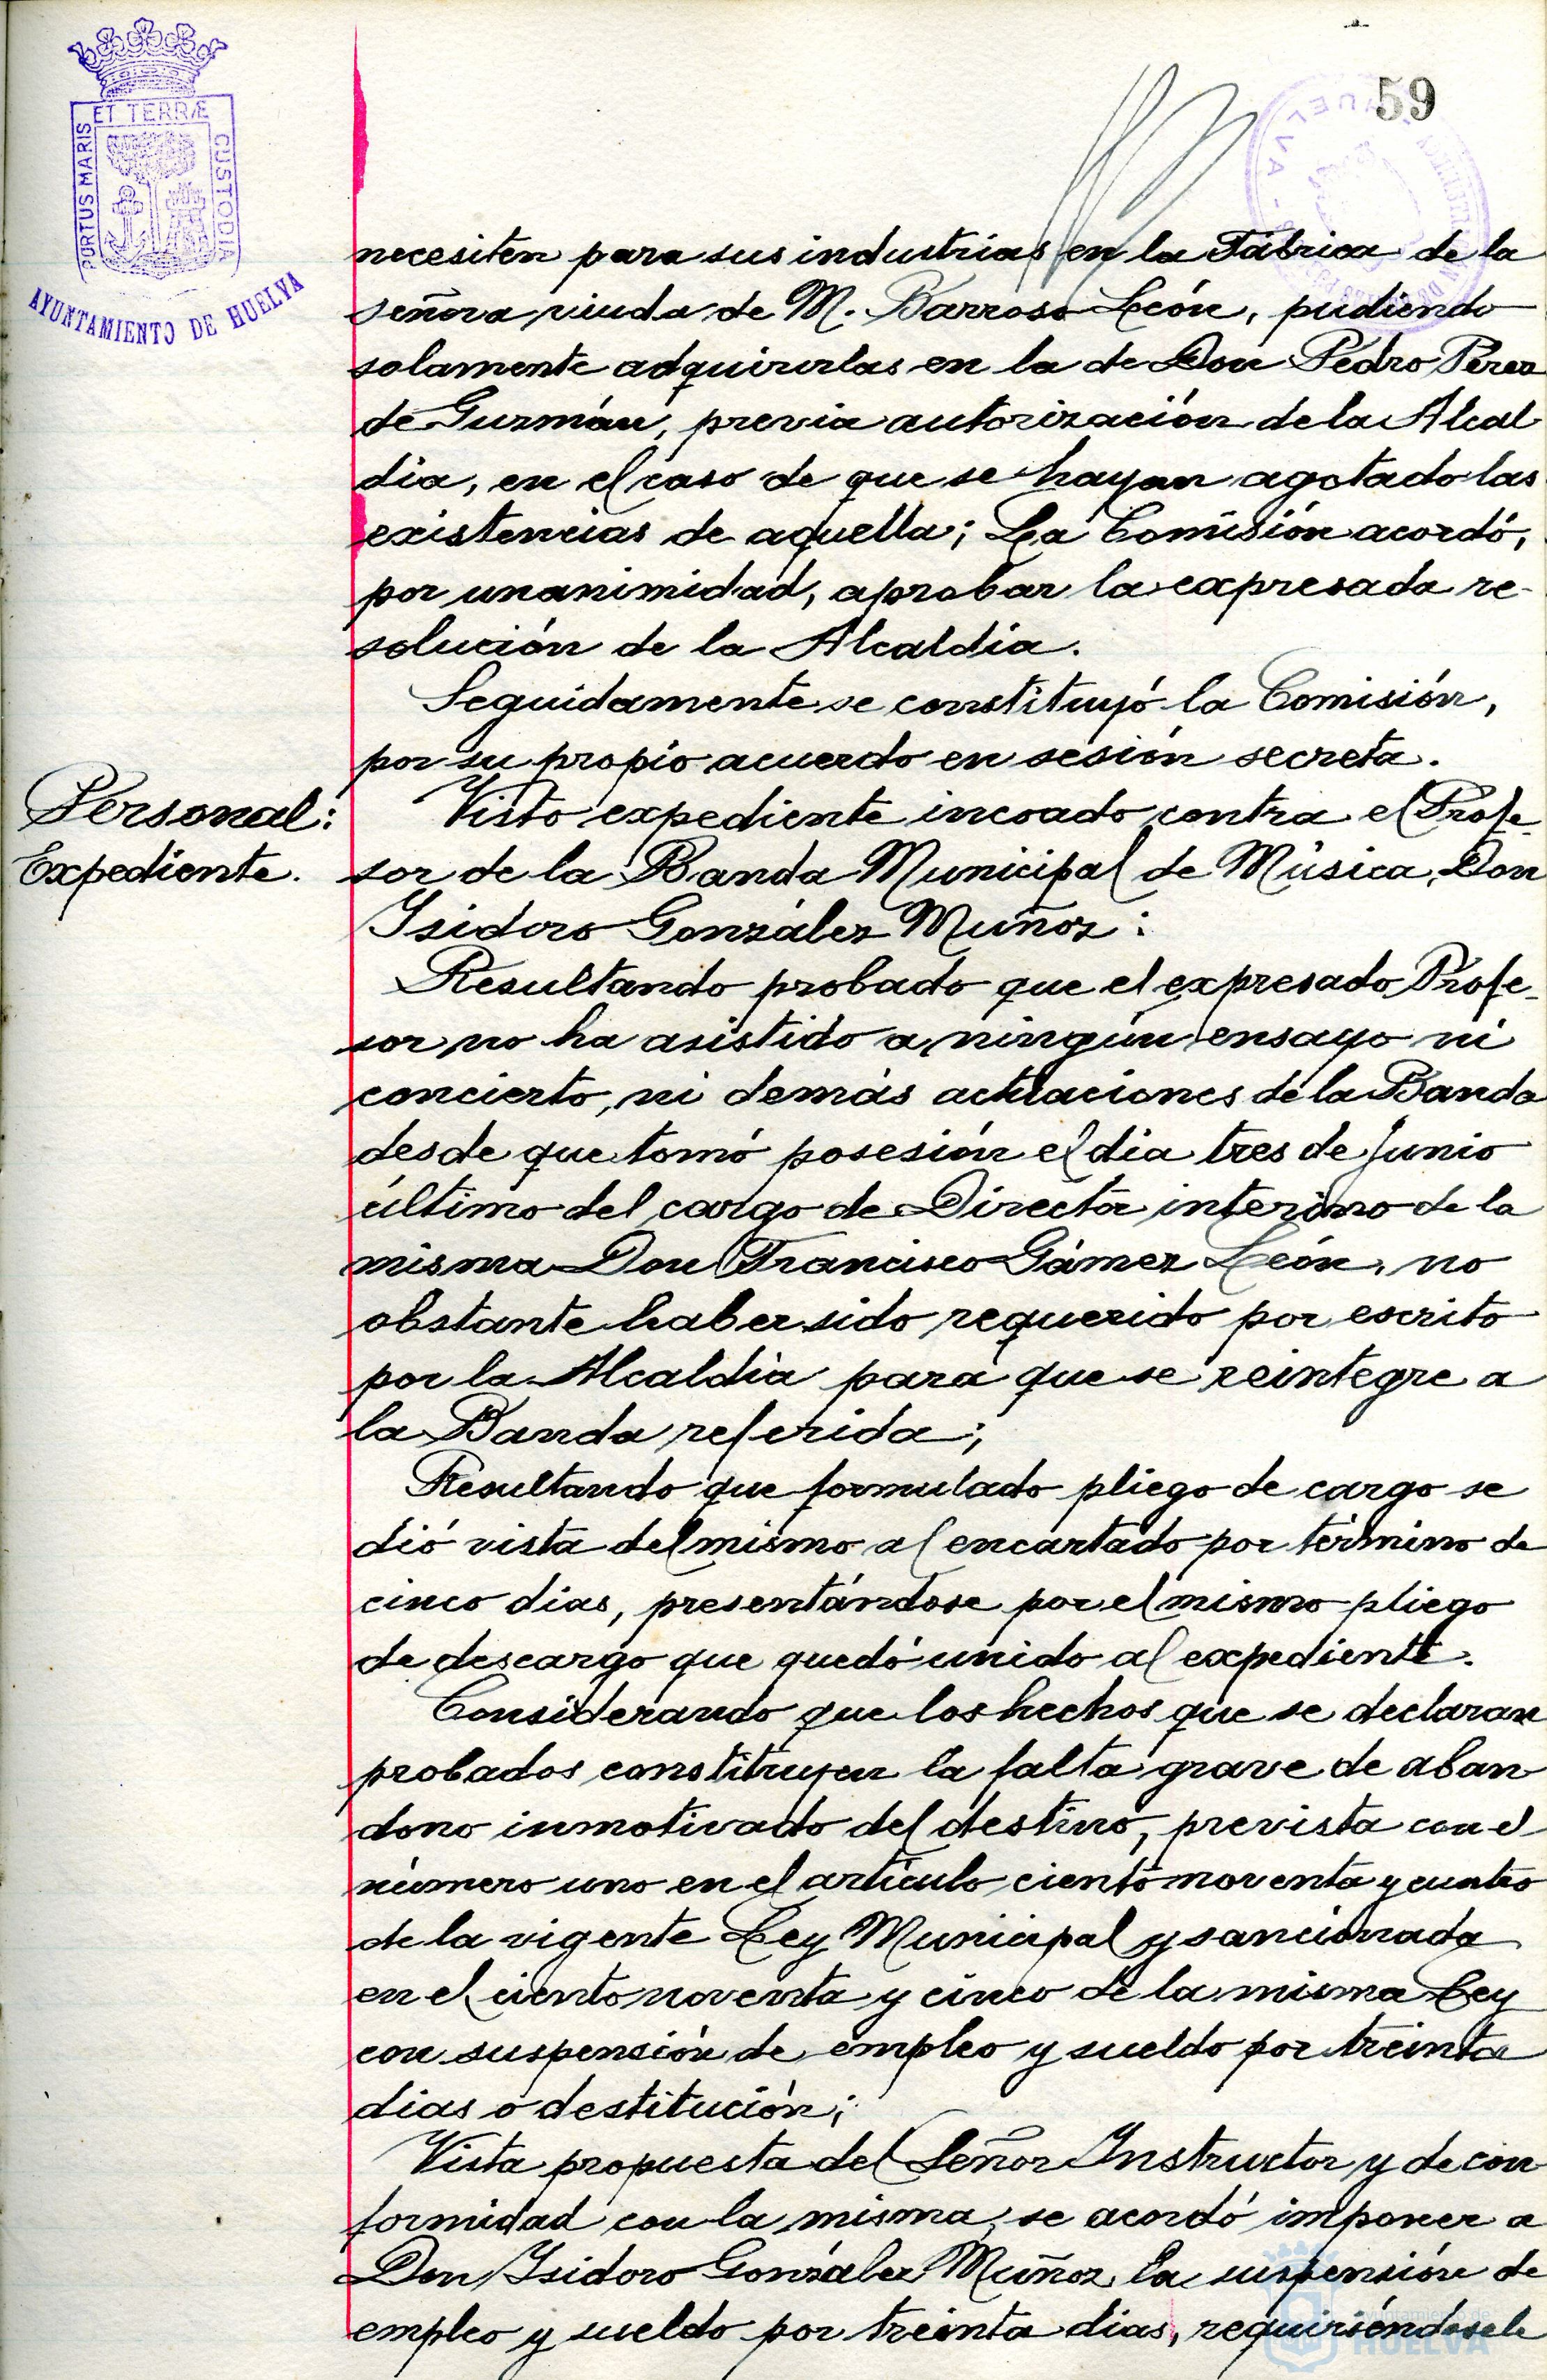 59
PORTUS MARIS ET TERRÆ CUSTODIA
AYUNTAMIENTO DE HUELVA
necesiten para sus industrias en la Fábrica de la
señora viuda de M. Barroso León, pudiendo
solamente adquirirlas en la de Don Pedro Perez
de Guzmán, previa autorización de la Alcal-
dia, en el caso de que se hayan agotado las
existencias de aquella; La Comisión acordó,
por unanimidad, aprobar la expresada re-
solución de la Alcaldía.
Seguidamente se constituyó la Comisión,
por su propio acuerdo en sesión secreta.
Personal:
Expediente.
Visto expediente incoado contra el Profe-
sor de la Banda Municipal de Música, Don
Isidoro González Muñoz:
Resultando probado que el expresado Profe-
sor no ha asistido a ningún ensayo ni
concierto, ni demás actuaciones de la Banda
desde que tomó posesión el dia tres de Junio
último del cargo de Director interino de la
misma Don Francisco Gámez León, no
obstante haber sido requerido por escrito
por la Alcaldía para que se reintegre a
la Banda referida;
Resultando que formulado pliego de cargo se
dió vista del mismo al encartado por término de
cinco dias, presentándose por el mismo pliego
de descargo que quedó unido al expediente.
Considerando que los hechos que se declaran
probados constituyen la falta grave de aban-
dono inmotivado del destino, prevista con el
número uno en el artículo ciento noventa y cuatro
de la vigente Ley Municipal y sancionada
en el ciento noventa y cinco de la misma Ley
con suspensión de empleo y sueldo por treinta
dias o destitución;
Vista propuesta del Señor Instructor y de con-
formidad con la misma, se acordó imponer a
Don Isidoro González Muñoz la suspensión de
empleo y sueldo por treinta dias, requiriéndosele
Ayuntamiento de
HUELVA